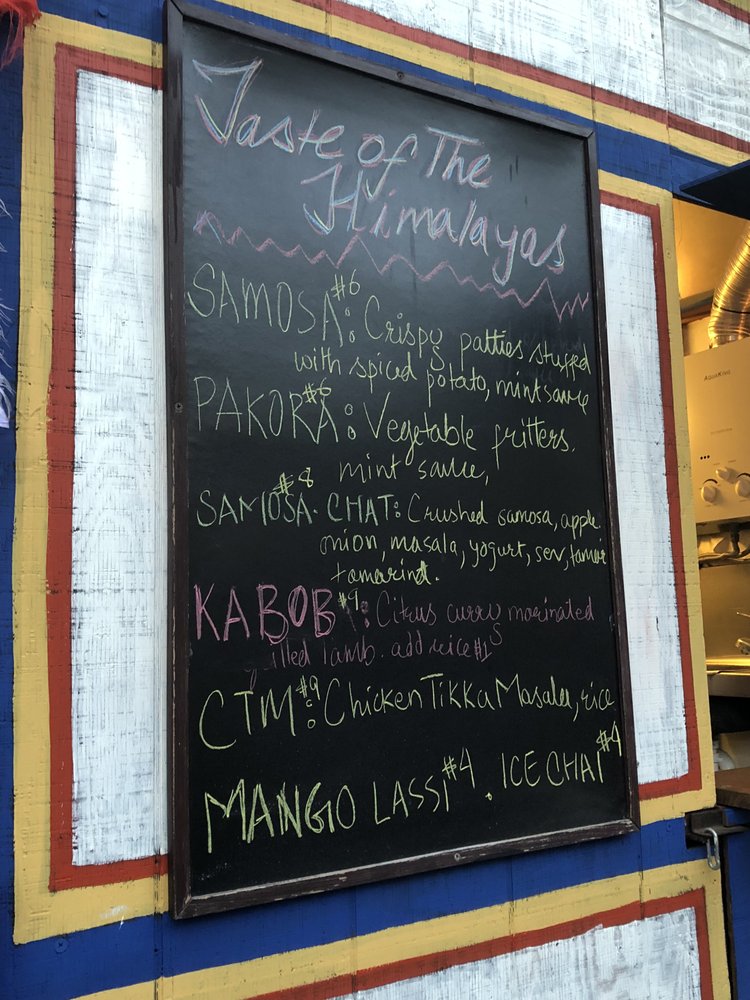 Taste of The
Himalayas
SAMOSA #6 : Crispy patties stuffed
with spiced potato, mint sauce
PAKORA #6 : Vegetable fritters.
mint sauce,
SAMOSA #8 . CHAT: Crushed samosa, apple
onion, masala, yogurt, sev,
tamarind.
KABOB #9 : Citrus curry marinated
grilled lamb. add rice #1
CTM #9 : Chicken Tikka Masala, rice
MANGO LASSI #4 . ICE CHAI #4
AQUAKING